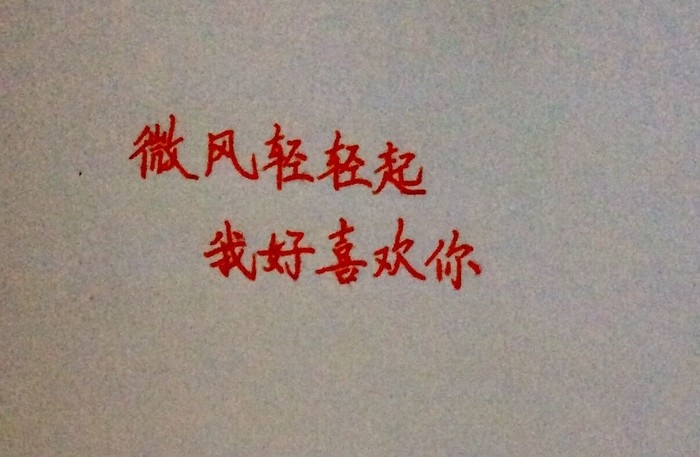 微风轻轻起
我好喜欢你